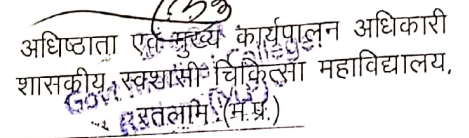 अधिष्ठाता एवं मुख्य कार्यपालन अधिकारी
शासकीय स्वशासी चिकित्सा महाविद्यालय,
रतलाम (म.प्र.)